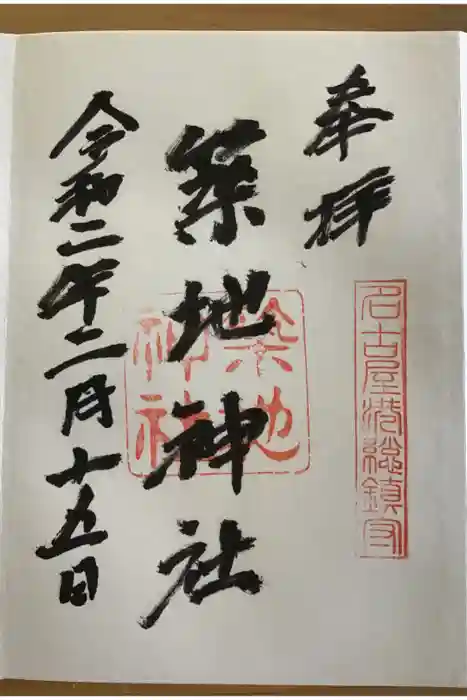 奉拝
名古屋港総鎮守
築地神社
築地神社
令和二年二月十五日